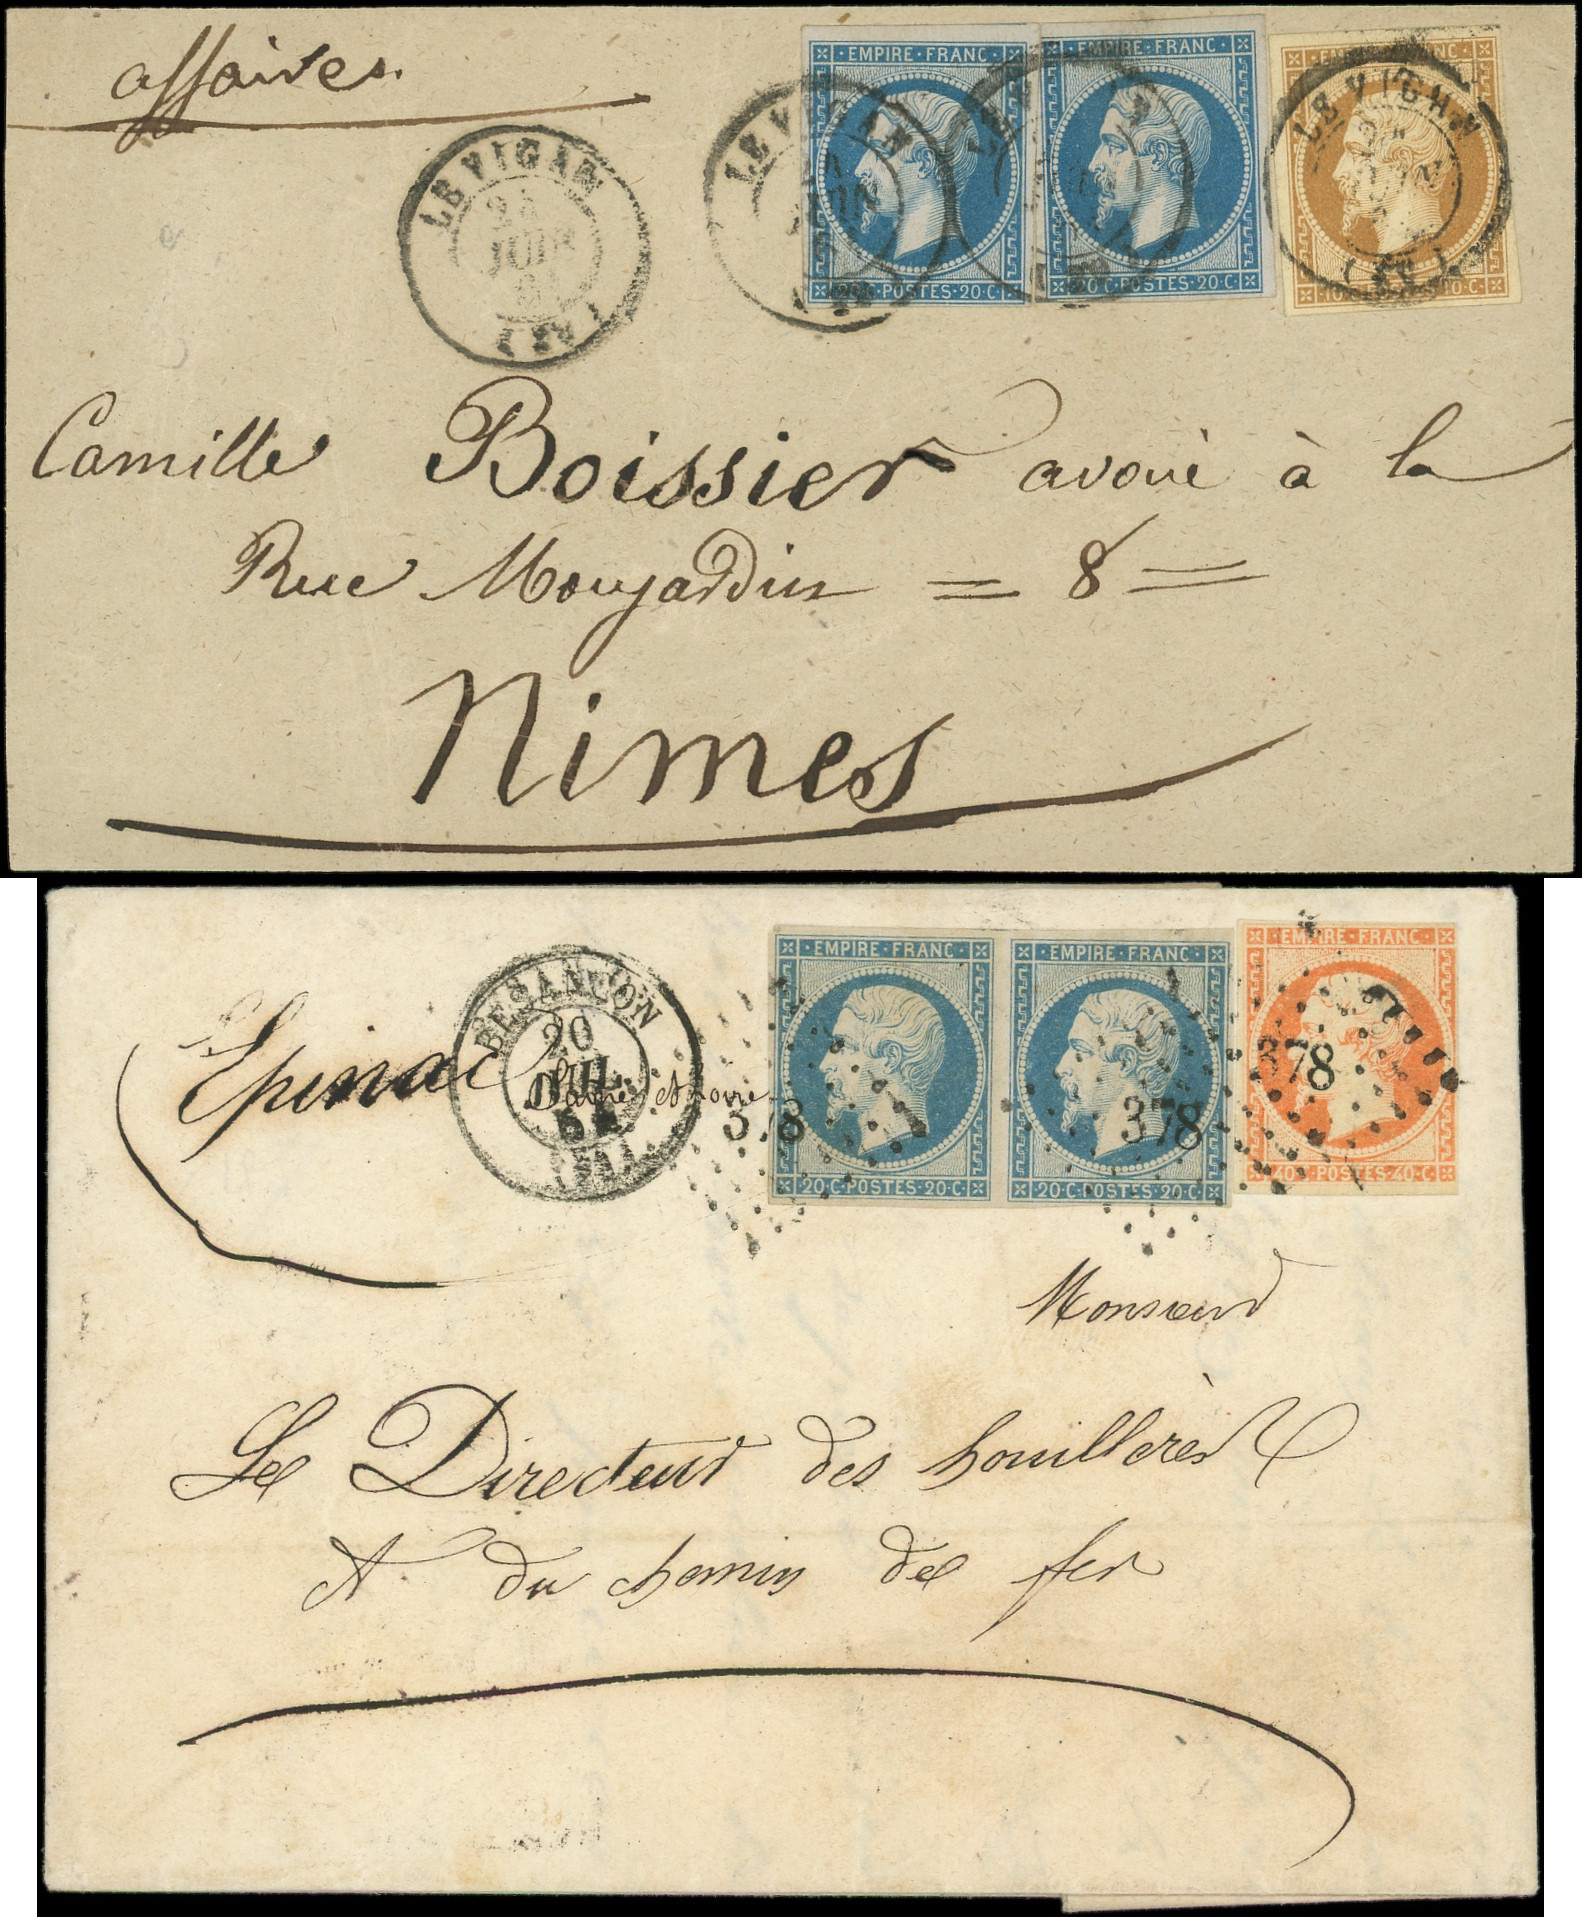 affaires.
EMPIRE · FRANC ·
20 · C · POSTES · 20 · C ·
EMPIRE · FRANC ·
20 · C · POSTES · 20 · C ·
EMPIRE FRANC
10
LE VIGAN
JUIN
LE VIGAN
JUIN
LE VIGAN
Camille Boissier avoué à la
Rue Moujardin = 8 =
Nimes
EMPIRE · FRANC ·
20 · C · POSTES · 20 · C ·
EMPIRE · FRANC ·
20 · C · POSTES · 20 · C ·
EMPIRE · FRANC ·
40 · C · POSTES · 40 · C ·
BESANÇON
20
JUIL
Epinac
378
378
378
Monsieur
Le Directeur des houillères
Et du chemin de fer